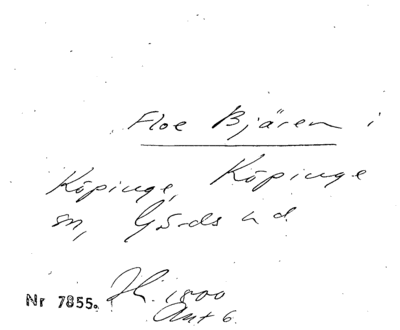 Floe Bjären i
Köpinge, Köpinge
sn, Gärds hd.
Nr 7855. Jli. 1800
Ant 6.